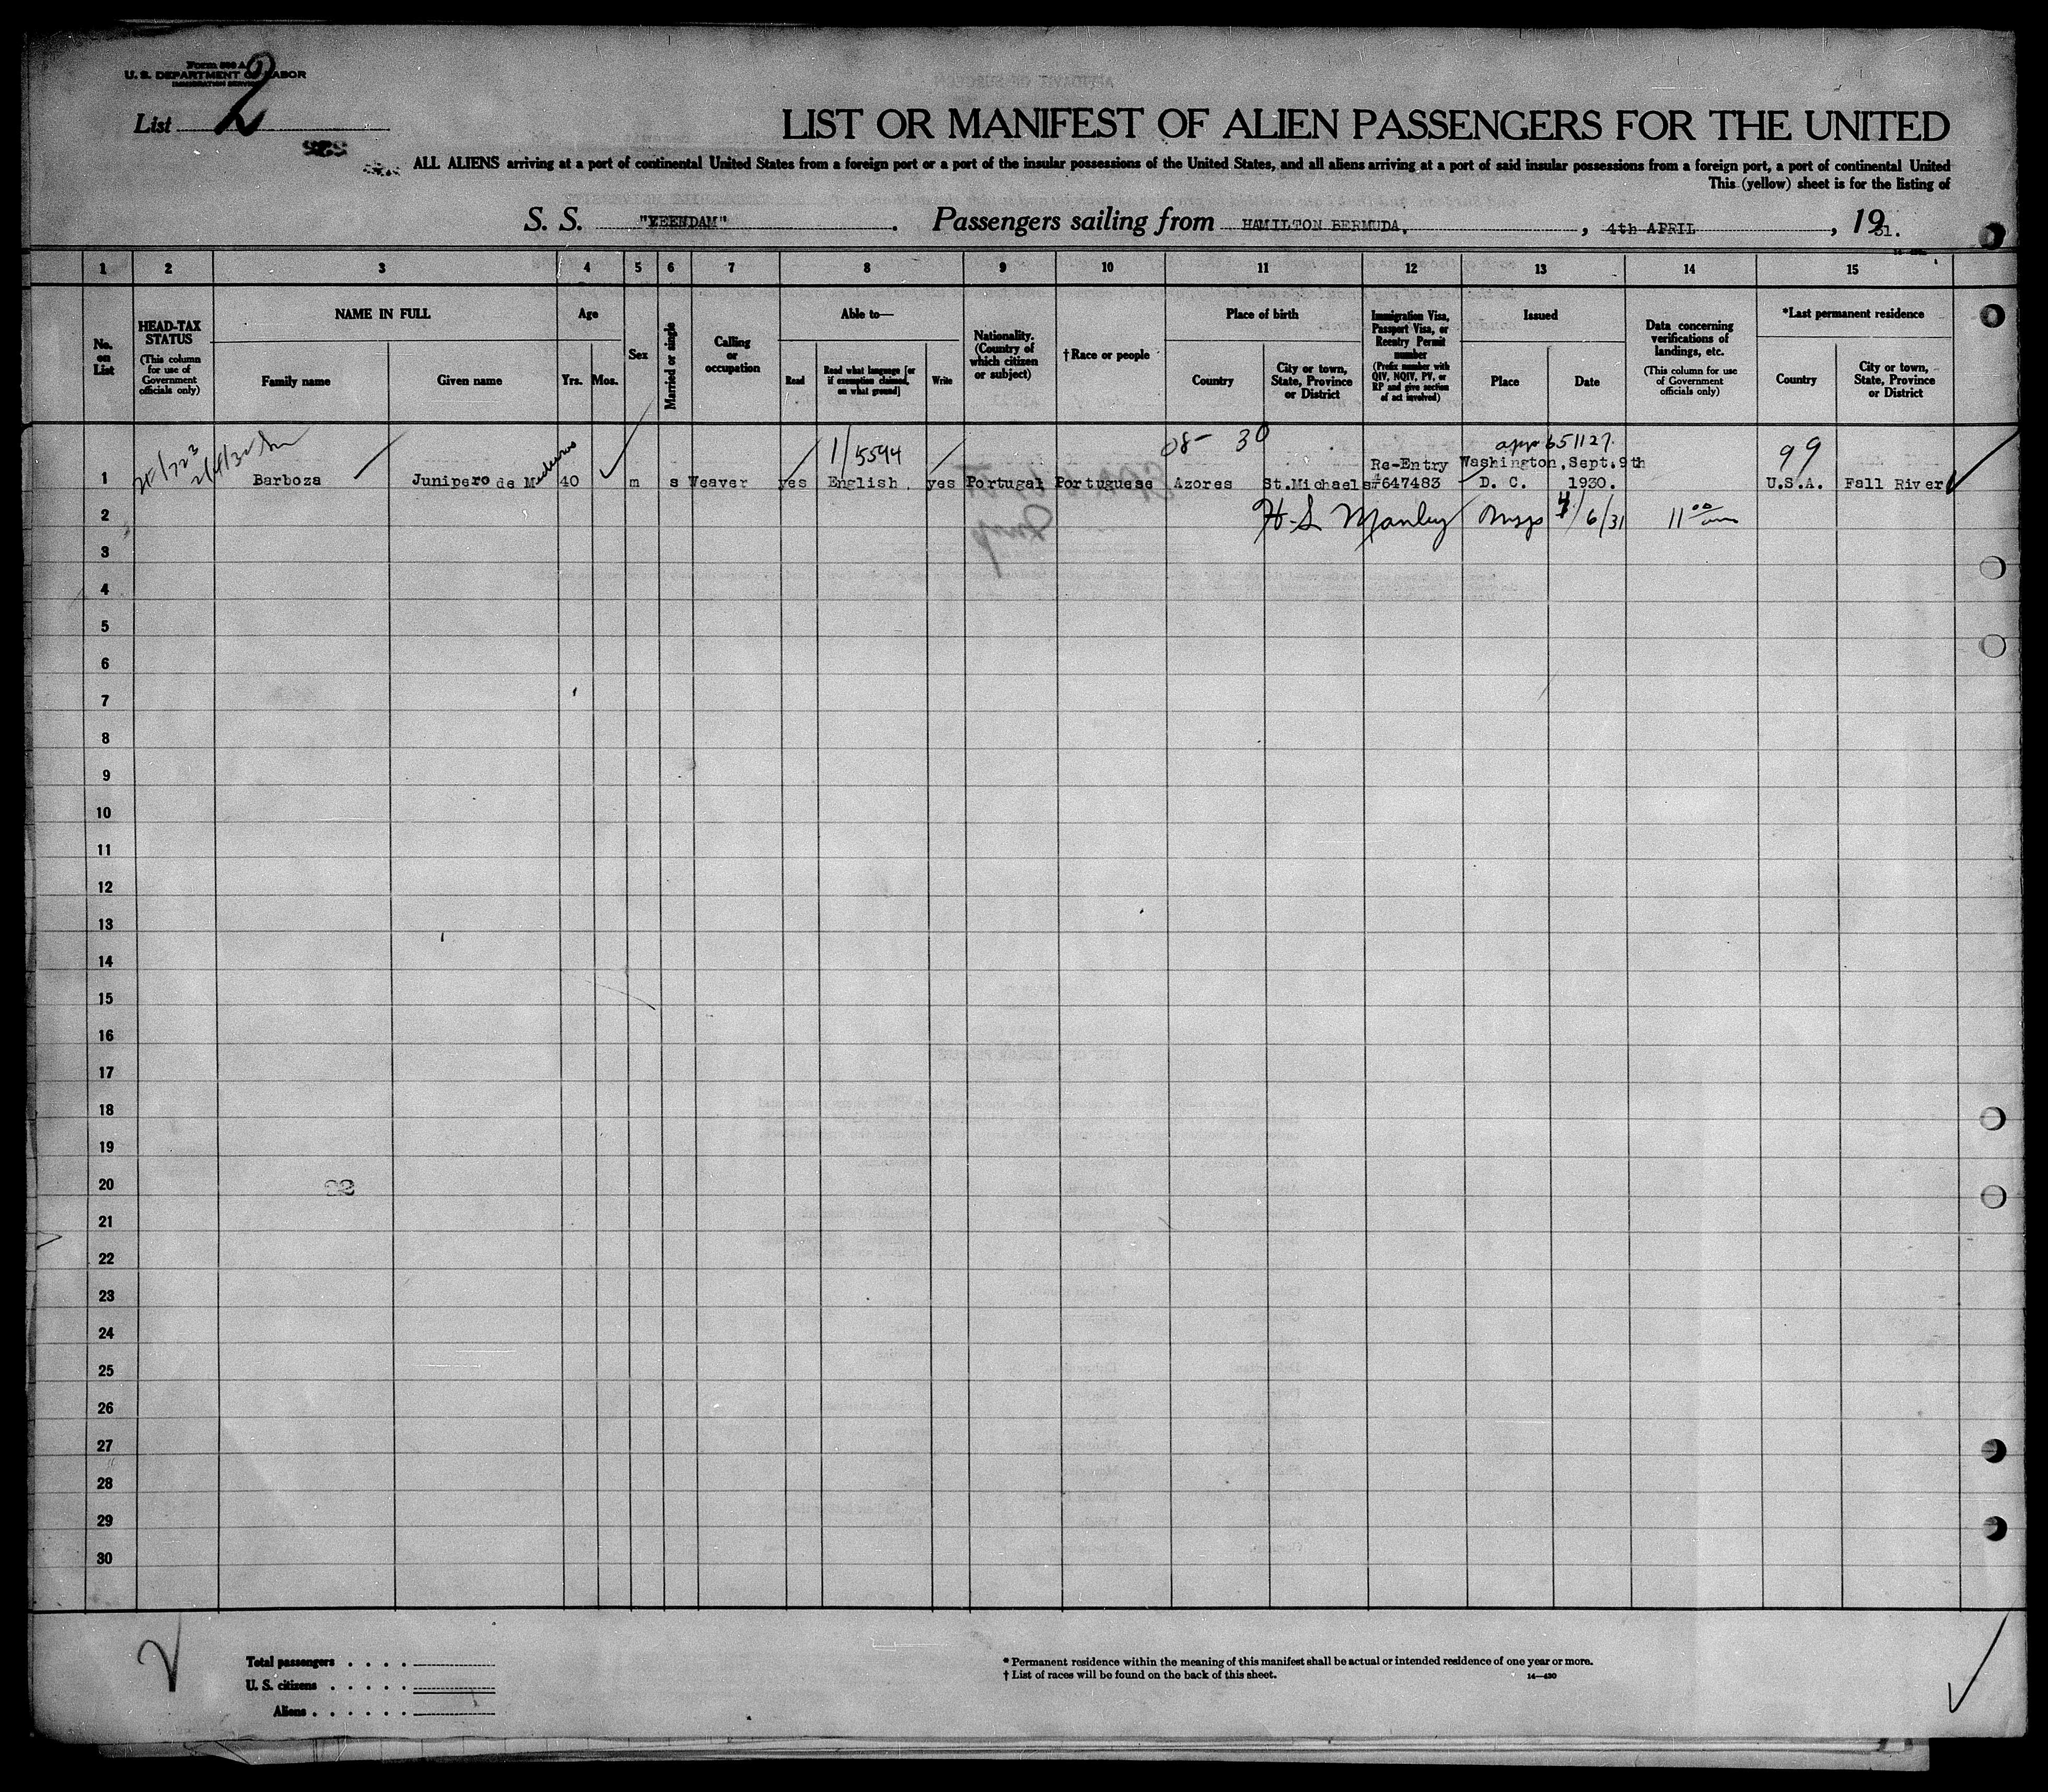 Form 500 A
U. S. DEPARTMENT OF LABOR
IMMIGRATION SERVICE
List 2
LIST OR MANIFEST OF ALIEN PASSENGERS FOR THE UNITED
ALL ALIENS arriving at a port of continental United States from a foreign port or a port of the insular possessions of the United States, and all aliens arriving at a port of said insular possessions from a foreign port, a port of continental United
This (yellow) sheet is for the listing of
S. S. "VEENDAM". Passengers sailing from HAMILTON BERMUDA. , 4th APRIL , 1931.
1 2 3 4 5 6 7 8 9 10 11 12 13 14 15
No. on List
HEAD-TAX STATUS (This column for use of Government officials only)
NAME IN FULL
Family name Given name
Age
Yrs. Mos.
Sex
Married or single
Calling or occupation
Able to—
Read
Read what language [or if exemption claimed, on what ground]
Write
Nationality. (Country of which citizen or subject)
†Race or people
Place of birth
Country
City or town, State, Province or District
Immigration Visa, Passport Visa, or Reentry Permit number (Prefix number with QIV, NQIV, PV, or RP and give section of act involved)
Issued
Place Date
Data concerning verifications of landings, etc. (This column for use of Government officials only)
*Last permanent residence
Country
City or town, State, Province or District
1/5594 08- 30 app 651127. 99
Re-Entry Washington, Sept. 9th
1 Barboza Junipero de Medeiros 40 m s Weaver yes English. yes Portugal Portuguese Azores St.Michaels #647483 D. C. 1930. U.S.A. Fall River
2 H-S Manley Insp 4/6/31 11 00 am
3
4
5
6
7
8
9
10
11
12
13
14
15
16
17
18
19
20
21
22
23
24
25
26
27
28
29
30
2
Total passengers . . . .
U. S. citizens . . . . .
Aliens . . . . . .
* Permanent residence within the meaning of this manifest shall be actual or intended residence of one year or more.
† List of races will be found on the back of this sheet.
14—430